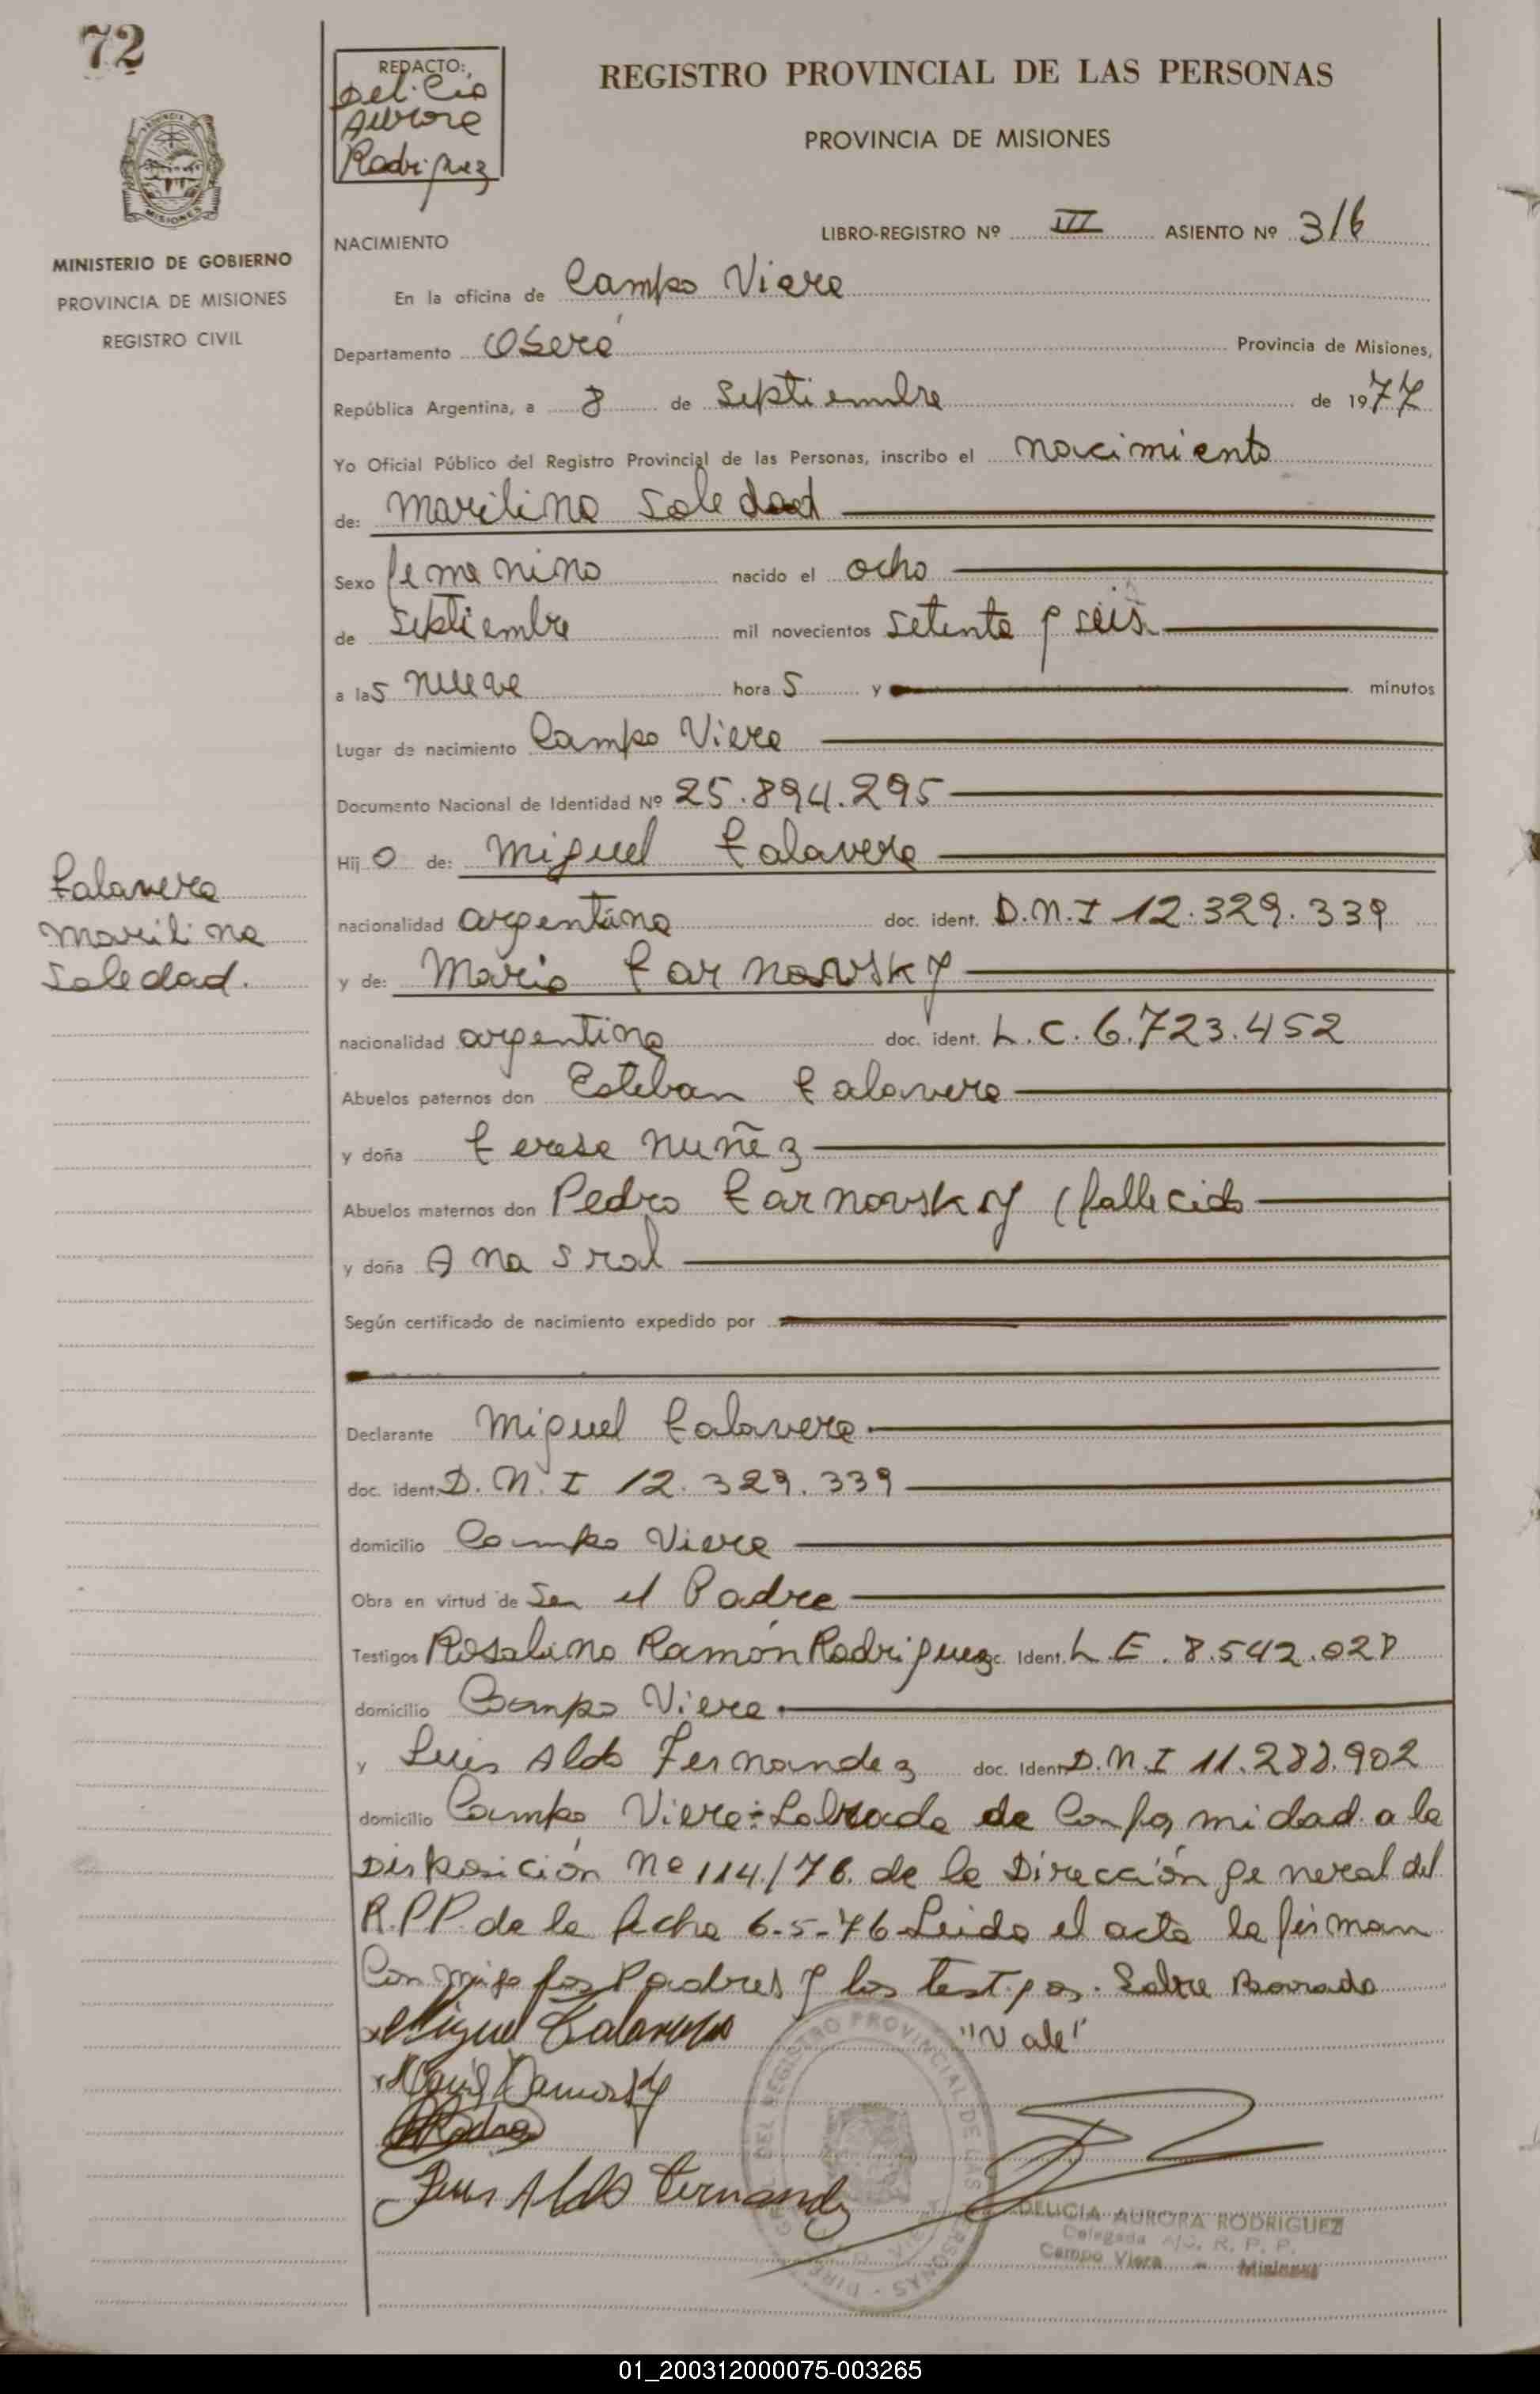 72
REDACTO:
Delicia
Aurora
Rodriguez
REGISTRO PROVINCIAL DE LAS PERSONAS
PROVINCIA DE MISIONES
MISIONES
MINISTERIO DE GOBIERNO
PROVINCIA DE MISIONES
REGISTRO CIVIL
LIBRO-REGISTRO Nº III ASIENTO Nº 316
NACIMIENTO
En la oficina de Campo Viera
Departamento Oberá Provincia de Misiones,
República Argentina, a 8 de Septiembre de 1977
Yo Oficial Público del Registro Provincial de las Personas, inscribo el nacimiento
de: Marilina Soledad
Sexo femenino nacido el ocho
de Septiembre mil novecientos setenta y seis
a las nueve horas y minutos
Lugar de nacimiento Campo Viera
Documento Nacional de Identidad Nº 25.894.295
Hijo de: Miguel Talavera
Talavera
Marilina
Soledad.
nacionalidad argentina doc. ident. D.N.I 12.329.339
y de: Maria Tarnovsky
nacionalidad argentina doc. ident. L.C. 6.723.452
Abuelos paternos don Esteban Talavera
y doña Teresa Nuñez
Abuelos maternos don Pedro Tarnovsky (fallecido
y doña Ana Sral
Según certificado de nacimiento expedido por
Declarante Miguel Talavera
doc. ident. D.N.I 12.329.339
domicilio Campo Viera
Obra en virtud de Ser el Padre
Testigos Rosalino Ramón Rodriguez Ident. L E. 8.542.028
domicilio Campo Viera.
y Luis Aldo Fernandez doc. Ident D.N.I 11.288.902
domicilio Campo Viera: Labrada de Conformidad a la
Disposición Nº 114/76 de la Dirección general del
R.P.P. de la fecha 6-5-76 Leida el acta la firman
Conmigo los Padres y los testigos. Sobre Borrado
"Vale"
Miguel Talavera
Luis Aldo Fernandez
DELICIA AURORA RODRIGUEZ
Delegada A/C. R. P. P.
Campo Viera - Misiones
01_200312000075-003265